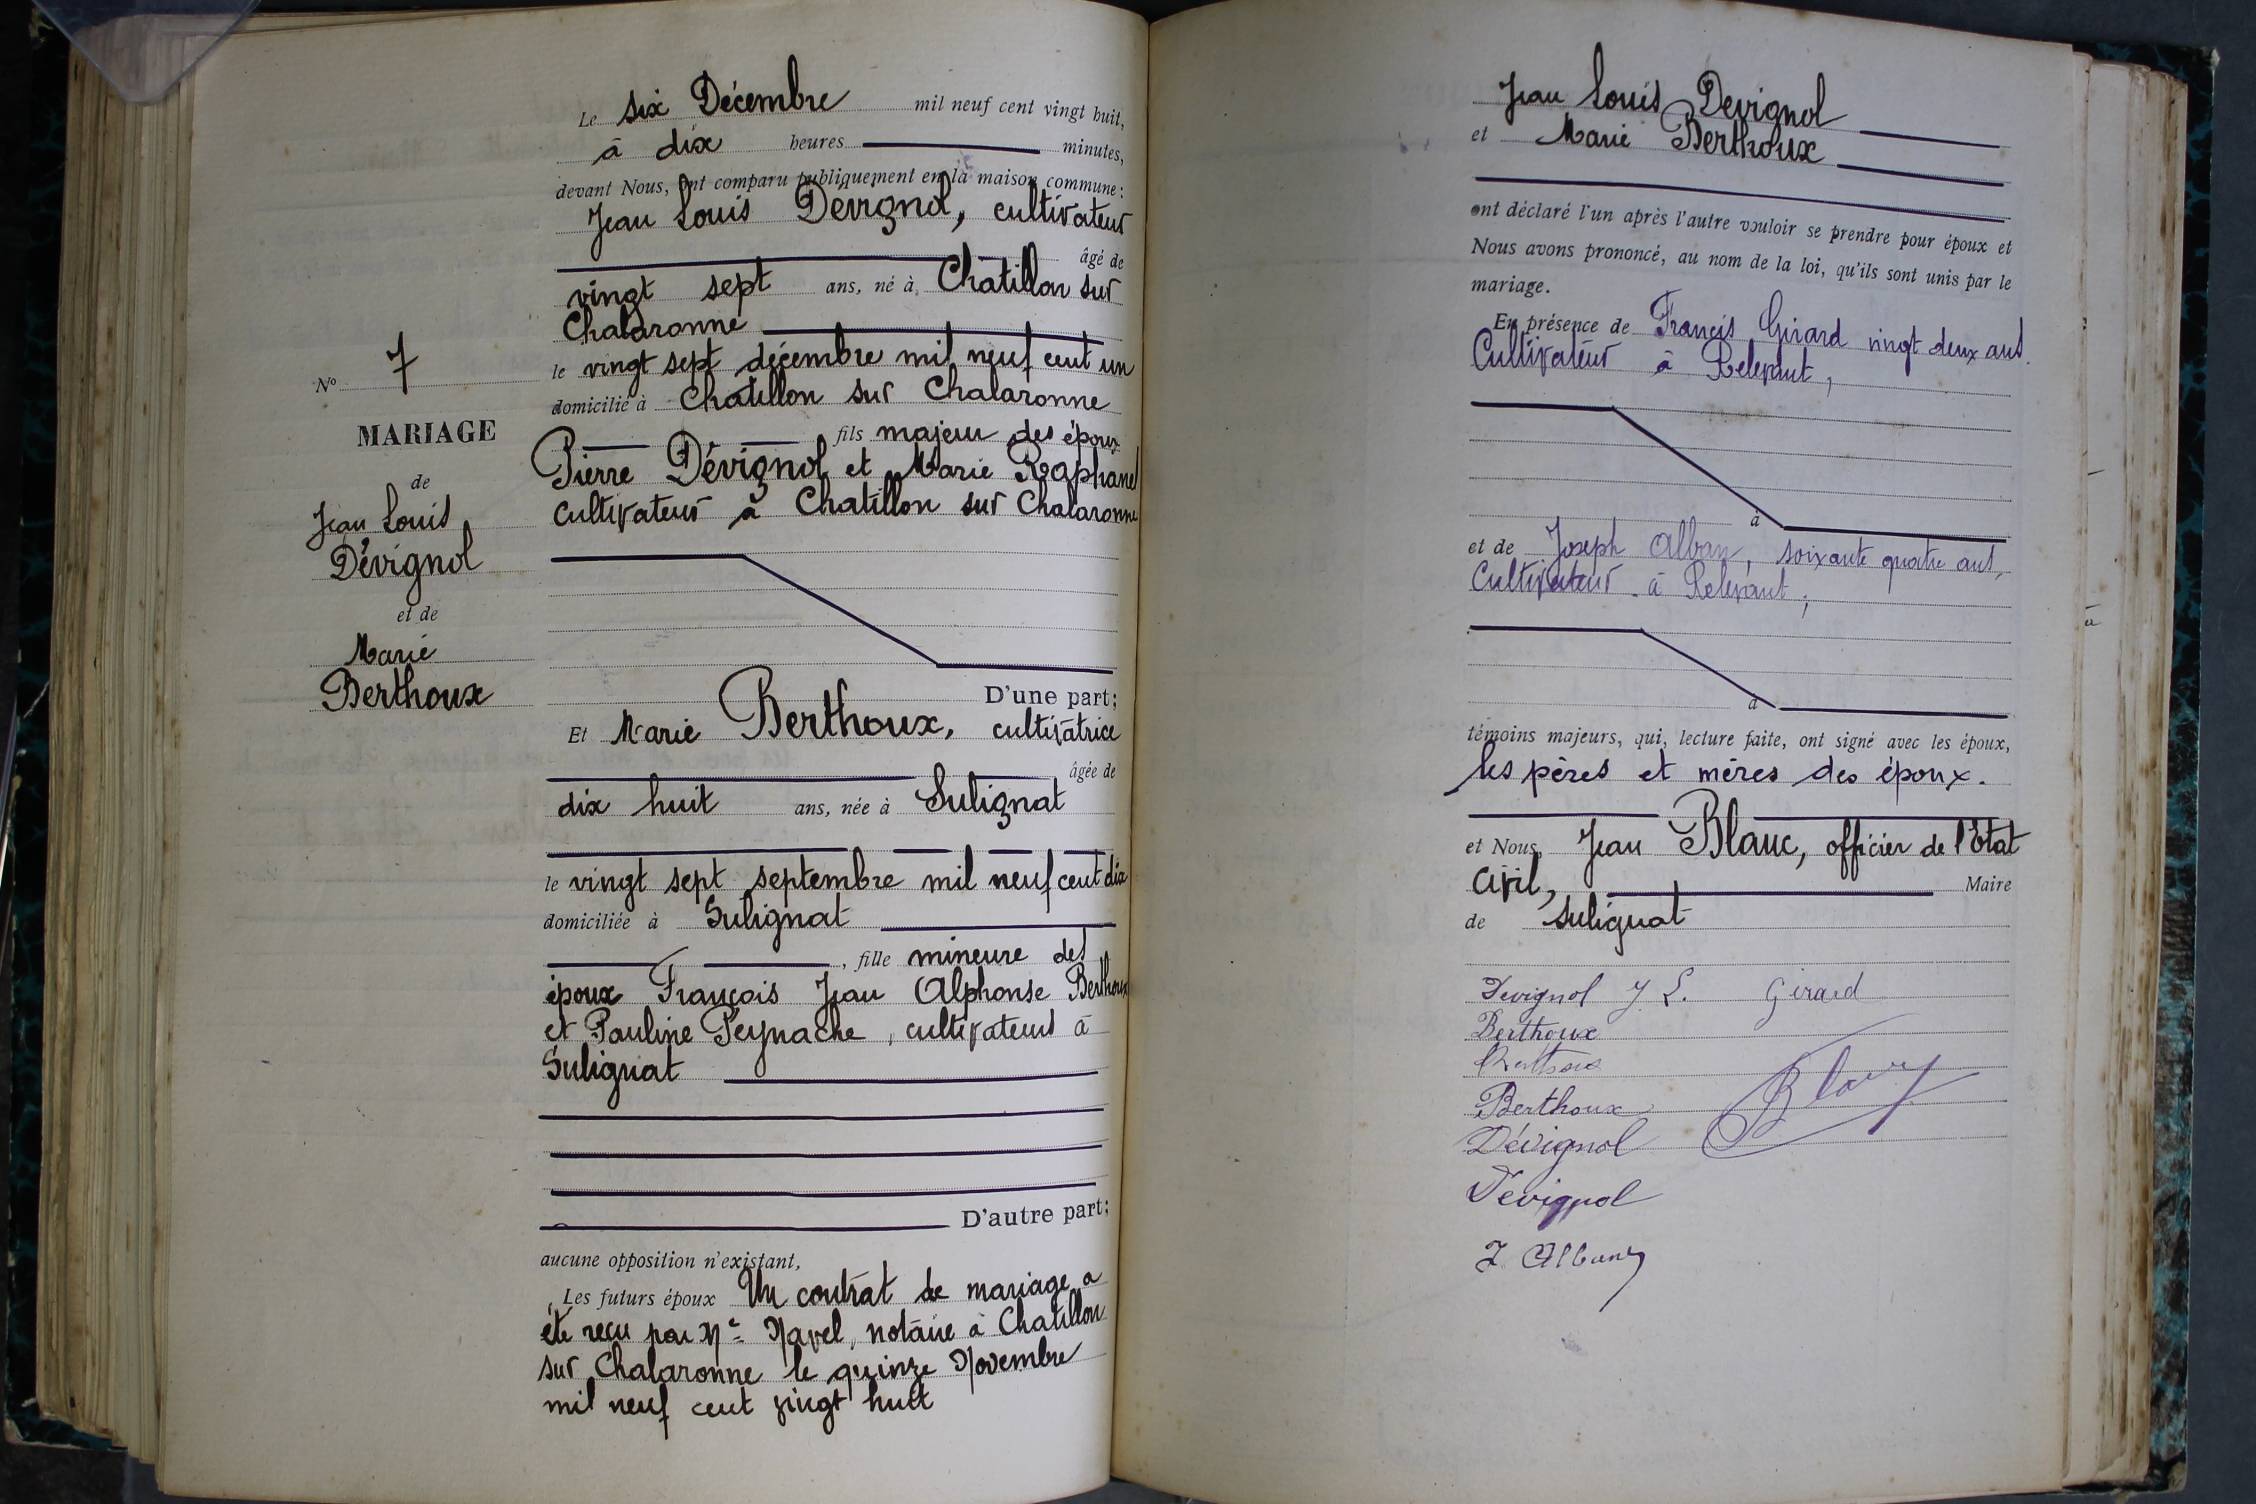 N° 7
MARIAGE
de
Jean Louis
Dévignol
et de
Marie
Berthoux
Le six Décembre mil neuf cent vingt huit,
à dix heures minutes,
devant Nous, ont comparu publiquement en la maison commune :
Jean Louis Dévignol, cultivateur
âgé de
vingt sept ans, né à Chatillon sur
Chalaronne
le vingt sept décembre mil neuf cent un
domicilié à Chatillon sur Chalaronne
fils majeur des époux
Pierre Dévignol et Marie Raphanel
cultivateurs à Chatillon sur Chalaronne
D'une part;
Et Marie Berthoux, cultivatrice
âgée de
dix huit ans, née à Sulignat
le vingt sept septembre mil neuf cent dix
domiciliée à Sulignat
, fille mineure des
époux François Jean Alphonse Berthoux
et Pauline Peynache, cultivateurs à
Sulignat
D'autre part;
aucune opposition n'existant,
Les futurs époux Un contrat de mariage a
été reçu par Me Navel, notaire à Chatillon
sur Chalaronne le quinze Novembre
mil neuf cent vingt huit
Jean Louis Devignol
et Marie Berthoux
ont déclaré l'un après l'autre vouloir se prendre pour époux et
Nous avons prononcé, au nom de la loi, qu'ils sont unis par le
mariage.
En présence de Francis Girard vingt deux ans.
Cultivateur à Relevant,
à
et de Joseph Alban, soixante quatre ans,
Cultivateur à Relevant,
à
témoins majeurs, qui, lecture faite, ont signé avec les époux,
les pères et mères des époux.
et Nous, Jean Blanc, officier de l'Etat
Civil, Maire
de Sulignat
Devignol J L. Girard
Berthoux
Berthoux
Blanc
Dévignol
Devignol
J Alban